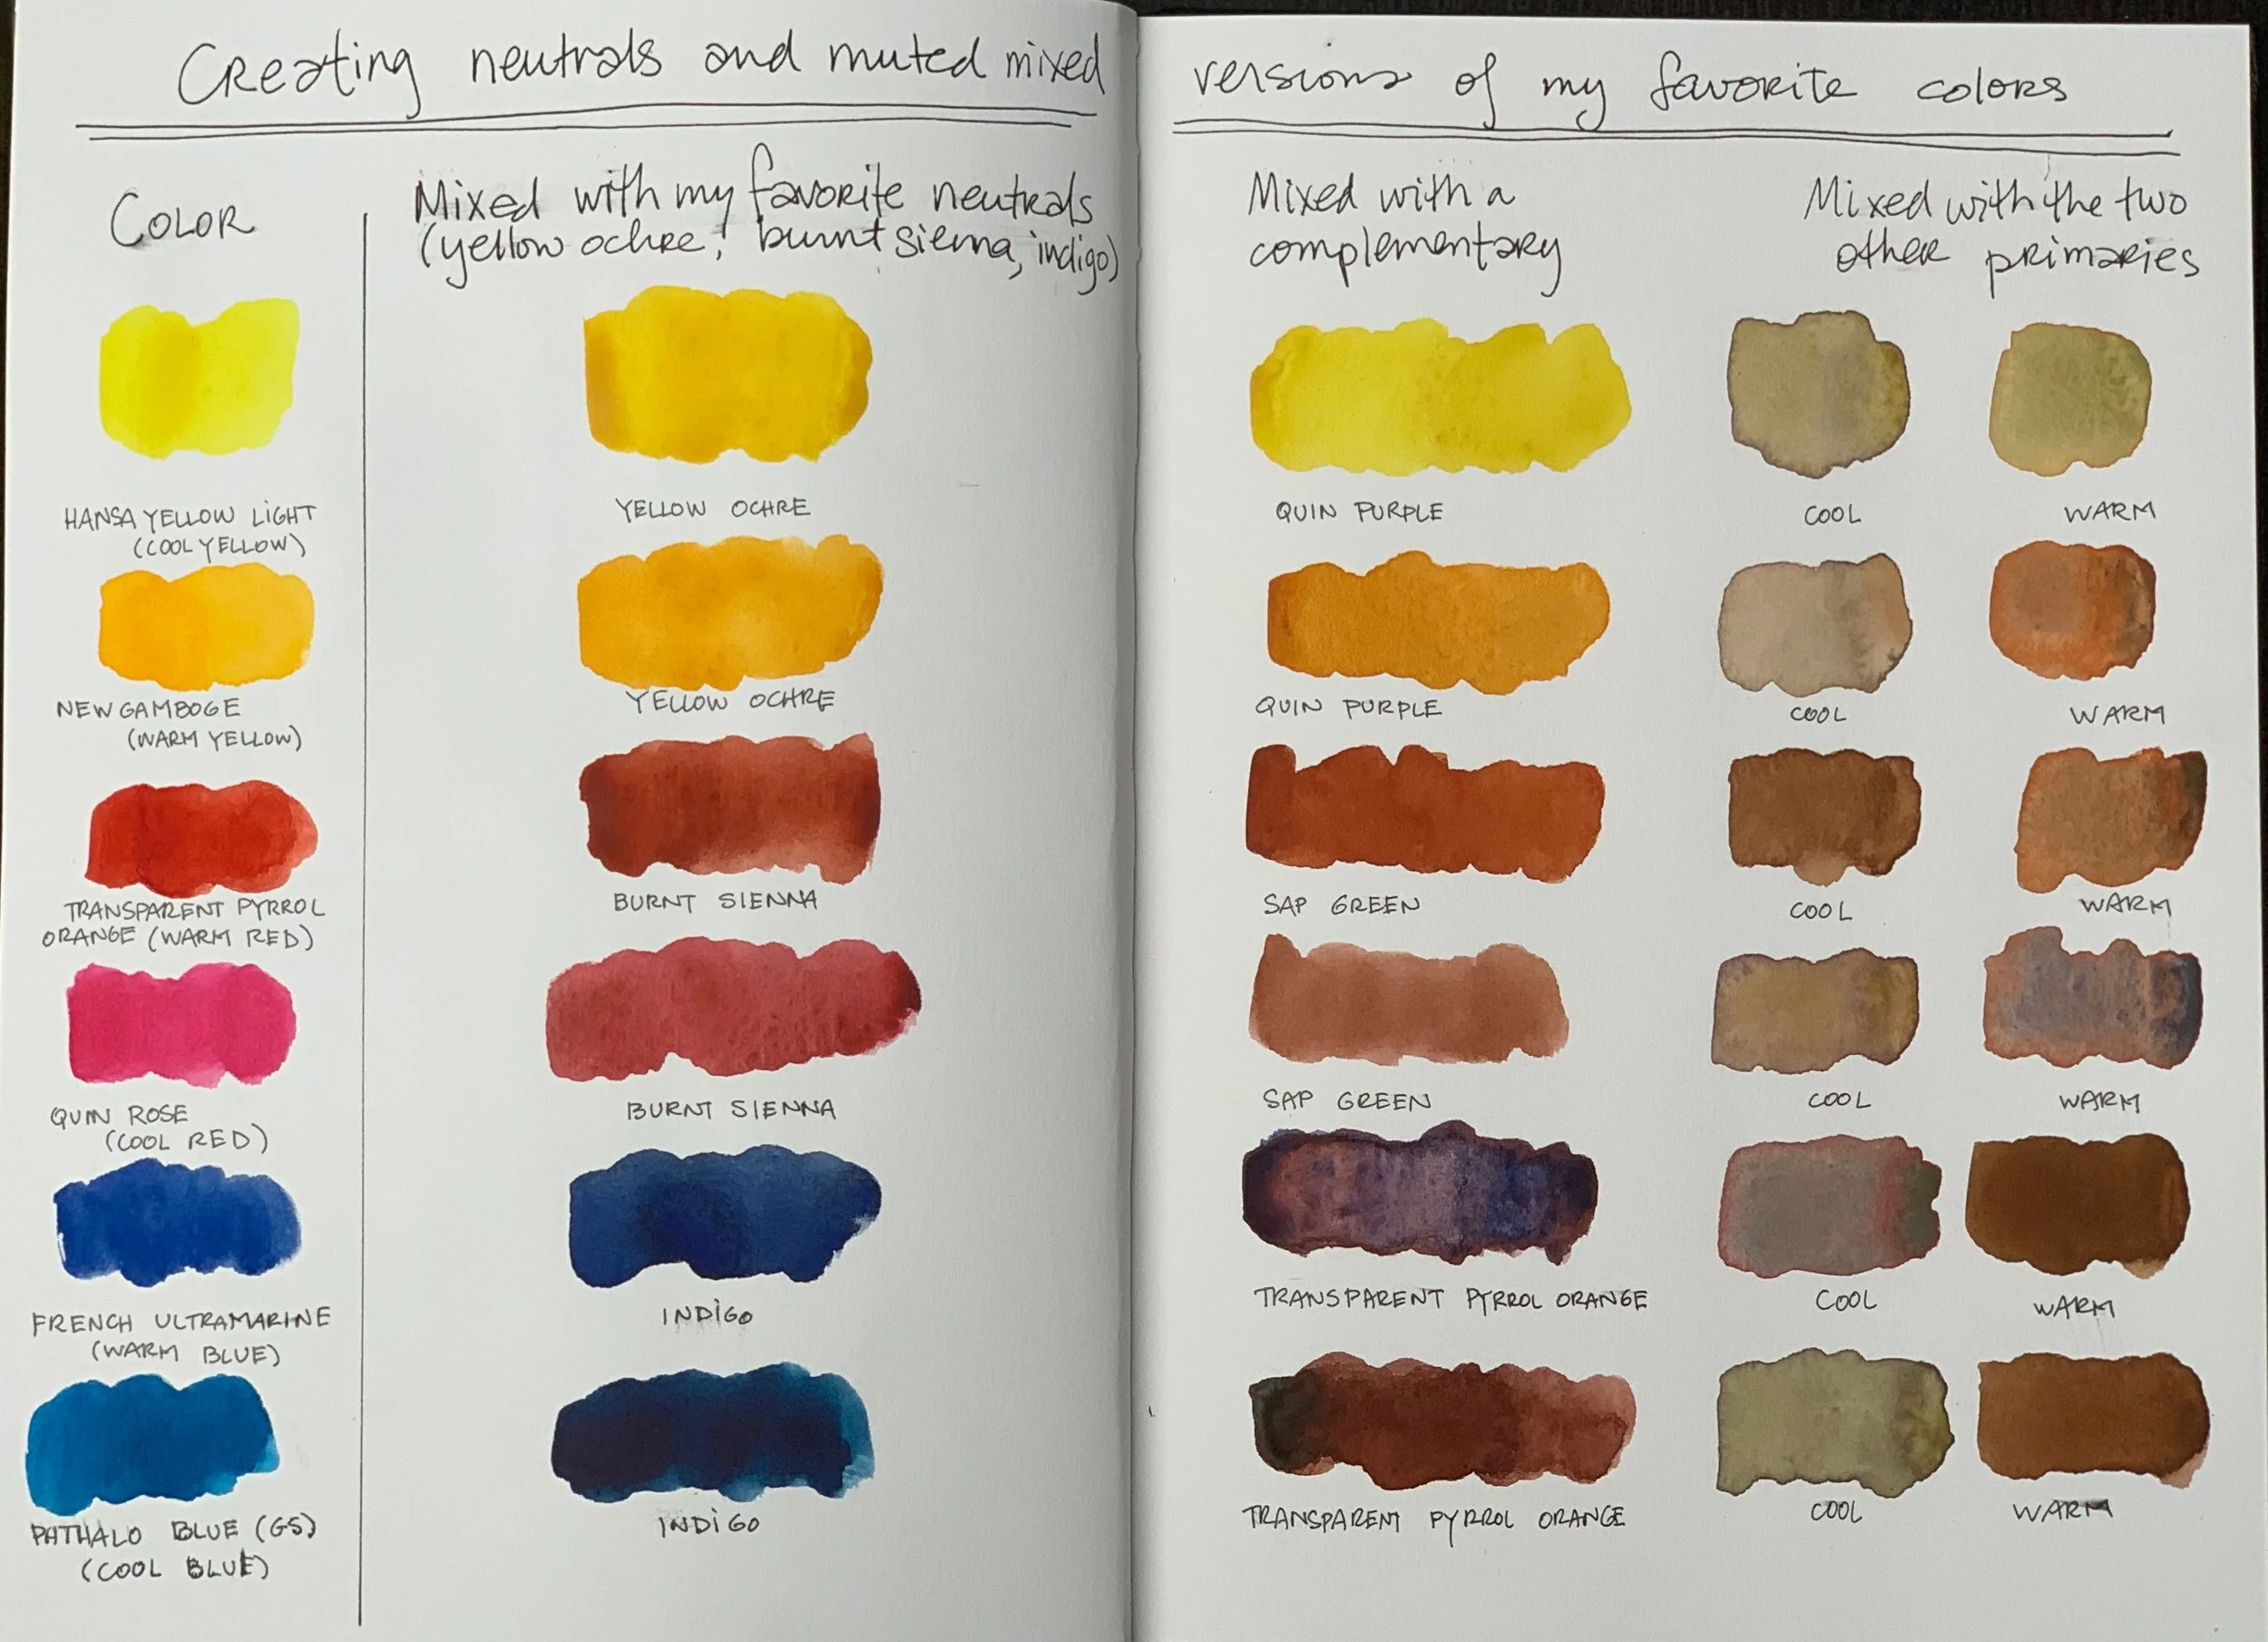 Creating neutrals and muted mixed versions of my favorite colors
COLOR
Mixed with my favorite neutrals
(yellow ochre, burnt sienna, indigo)
Mixed with a
complementary
Mixed with the two
other primaries
HANSA YELLOW LIGHT
(COOL YELLOW)
YELLOW OCHRE
QUIN PURPLE
COOL
WARM
NEW GAMBOGE
(WARM YELLOW)
YELLOW OCHRE
QUIN PURPLE
COOL
WARM
TRANSPARENT PYRROL
ORANGE (WARM RED)
BURNT SIENNA
SAP GREEN
COOL
WARM
QUIN ROSE
(COOL RED)
BURNT SIENNA
SAP GREEN
COOL
WARM
FRENCH ULTRAMARINE
(WARM BLUE)
INDIGO
TRANSPARENT PYRROL ORANGE
COOL
WARM
PHTHALO BLUE (GS)
(COOL BLUE)
INDIGO
TRANSPARENT PYRROL ORANGE
COOL
WARM